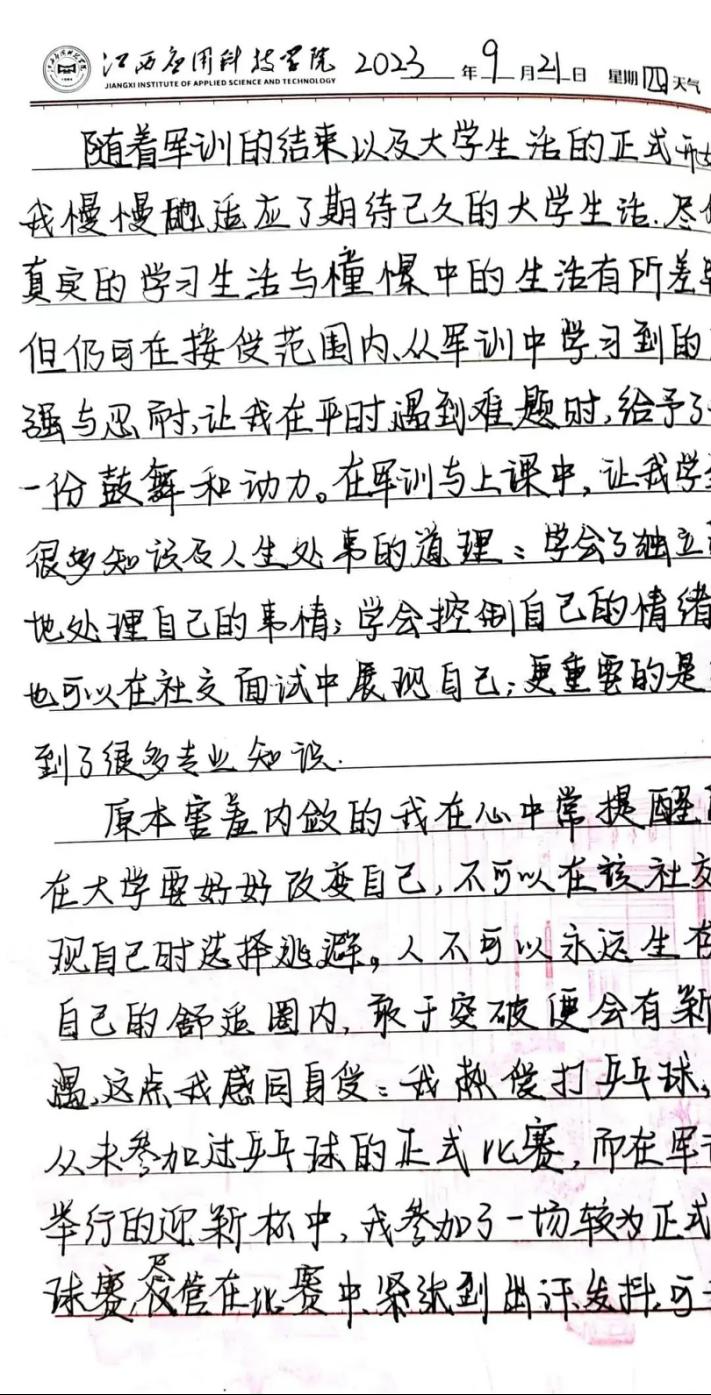 江西应用科技学院 2023年9月21日 星期四 天气
JIANGXI INSTITUTE OF APPLIED SCIENCE AND TECHNOLOGY
随着军训的结束以及大学生活的正式开
我慢慢地适应了期待已久的大学生活.尽
真实的学习生活与憧憬中的生活有所差
但仍可在接受范围内,从军训中学习到的
强与忍耐,让我在平时遇到难题时,给予了
一份鼓舞和动力。在军训与上课中,让我学
很多知识及人生处事的道理:学会了独立
地处理自己的事情;学会控制自己的情绪
也可以在社交面试中展现自己;更重要的是
到了很多专业知识.
原本害羞内敛的我在心中常提醒
在大学要好好改变自己,不可以在该社交
现自己时选择逃避。人不可以永远生存
自己的舒适圈内,敢于突破便会有新
遇,这点我感同身受:我热爱打乒乓球,
从未参加过乒乓球的正式比赛,而在军
举行的迎新杯中,我参加了一场较为正式
球赛,尽管在比赛中紧张到出汗发抖,可